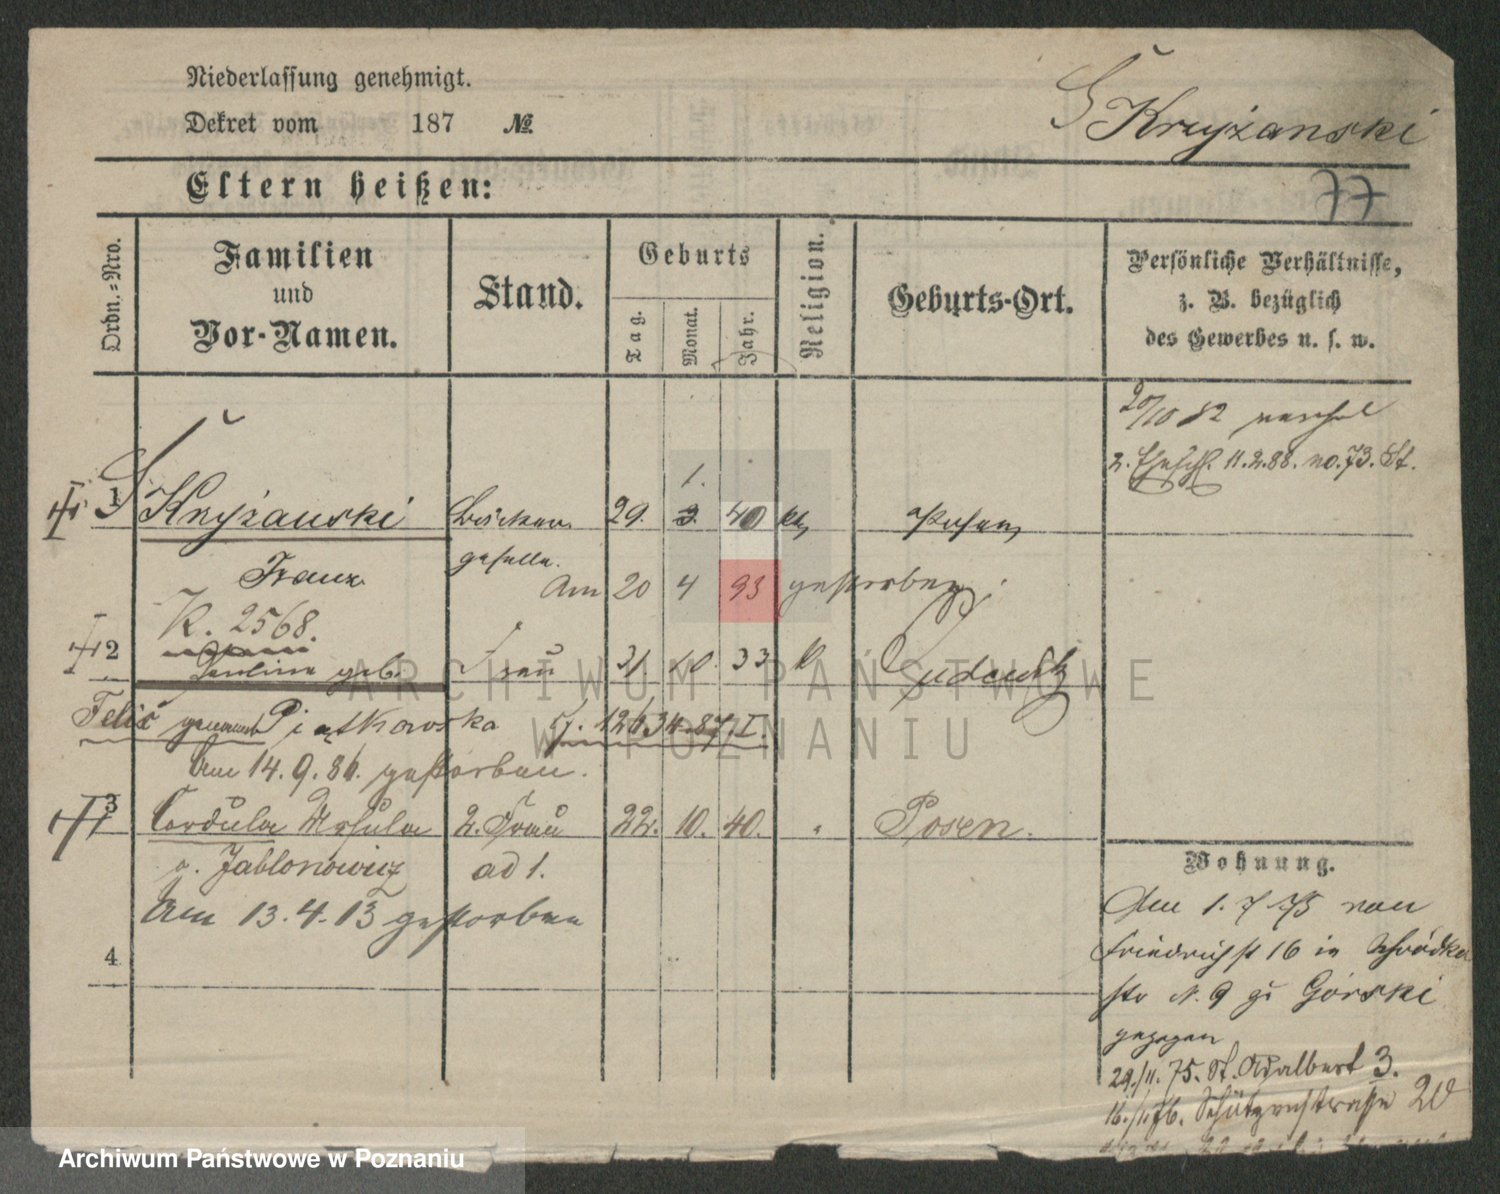 Niederlassung genehmigt.
Dekret vom 187 №
Kryżanski
Eltern heißen:
77
Ordn.-Nro.
Familien
und
Vor-Namen.
Stand.
Geburts
Tag.
Monat.
Jahr.
Religion.
Geburts-Ort.
Persönliche Verhältnisse,
z. B. bezüglich
des Gewerbes u. s. w.
20/10 82
2. Eheschl. 11.2.88. no. 73. St.
1 Kryżanski Bäcker 29. 1. 40 kth Posen
geselle.
Franz
Am 20 4 93 gestorben.
K. 2568.
2 Pauline geb. Frau 31 10. 33 k Pudewitz
Felix genannt Piątkowska
Am 14.9.86. gestorben.
3 Cordula Ursula 2. Frau 22. 10. 40. " Posen.
g. Jablonowicz ad 1.
Am 13.4.13 gestorben
4
Wohnung.
Am 1. 7 75 von
Friedrichst 16 in Schrodka
str N. 9 zu Górski
gezogen
29./11. 75. St. Adalbert 3.
16./11. 76. Schützenstraße 20
ARCHIWUM PAŃSTWOWE
W POZNANIU
Archiwum Państwowe w Poznaniu